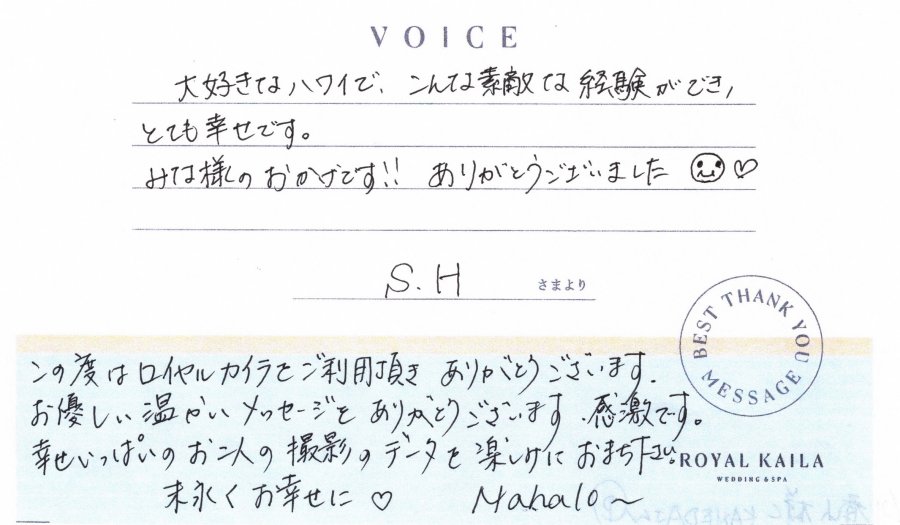 VOICE
大好きなハワイで、こんな素敵な経験ができ、
とても幸せです。
みな様のおかげです!! ありがとうございました ♡
S.H さまより
BEST THANK YOU MESSAGE
この度はロイヤルカイラをご利用頂き ありがとうございます.
お優しい温かいメッセージを ありがとうございます.感激です。
幸せいっぱいのお二人の撮影のデータを楽しみに おまち下さい。
ROYAL KAILA
WEDDING & SPA
末永くお幸せに ♡ Mahalo〜